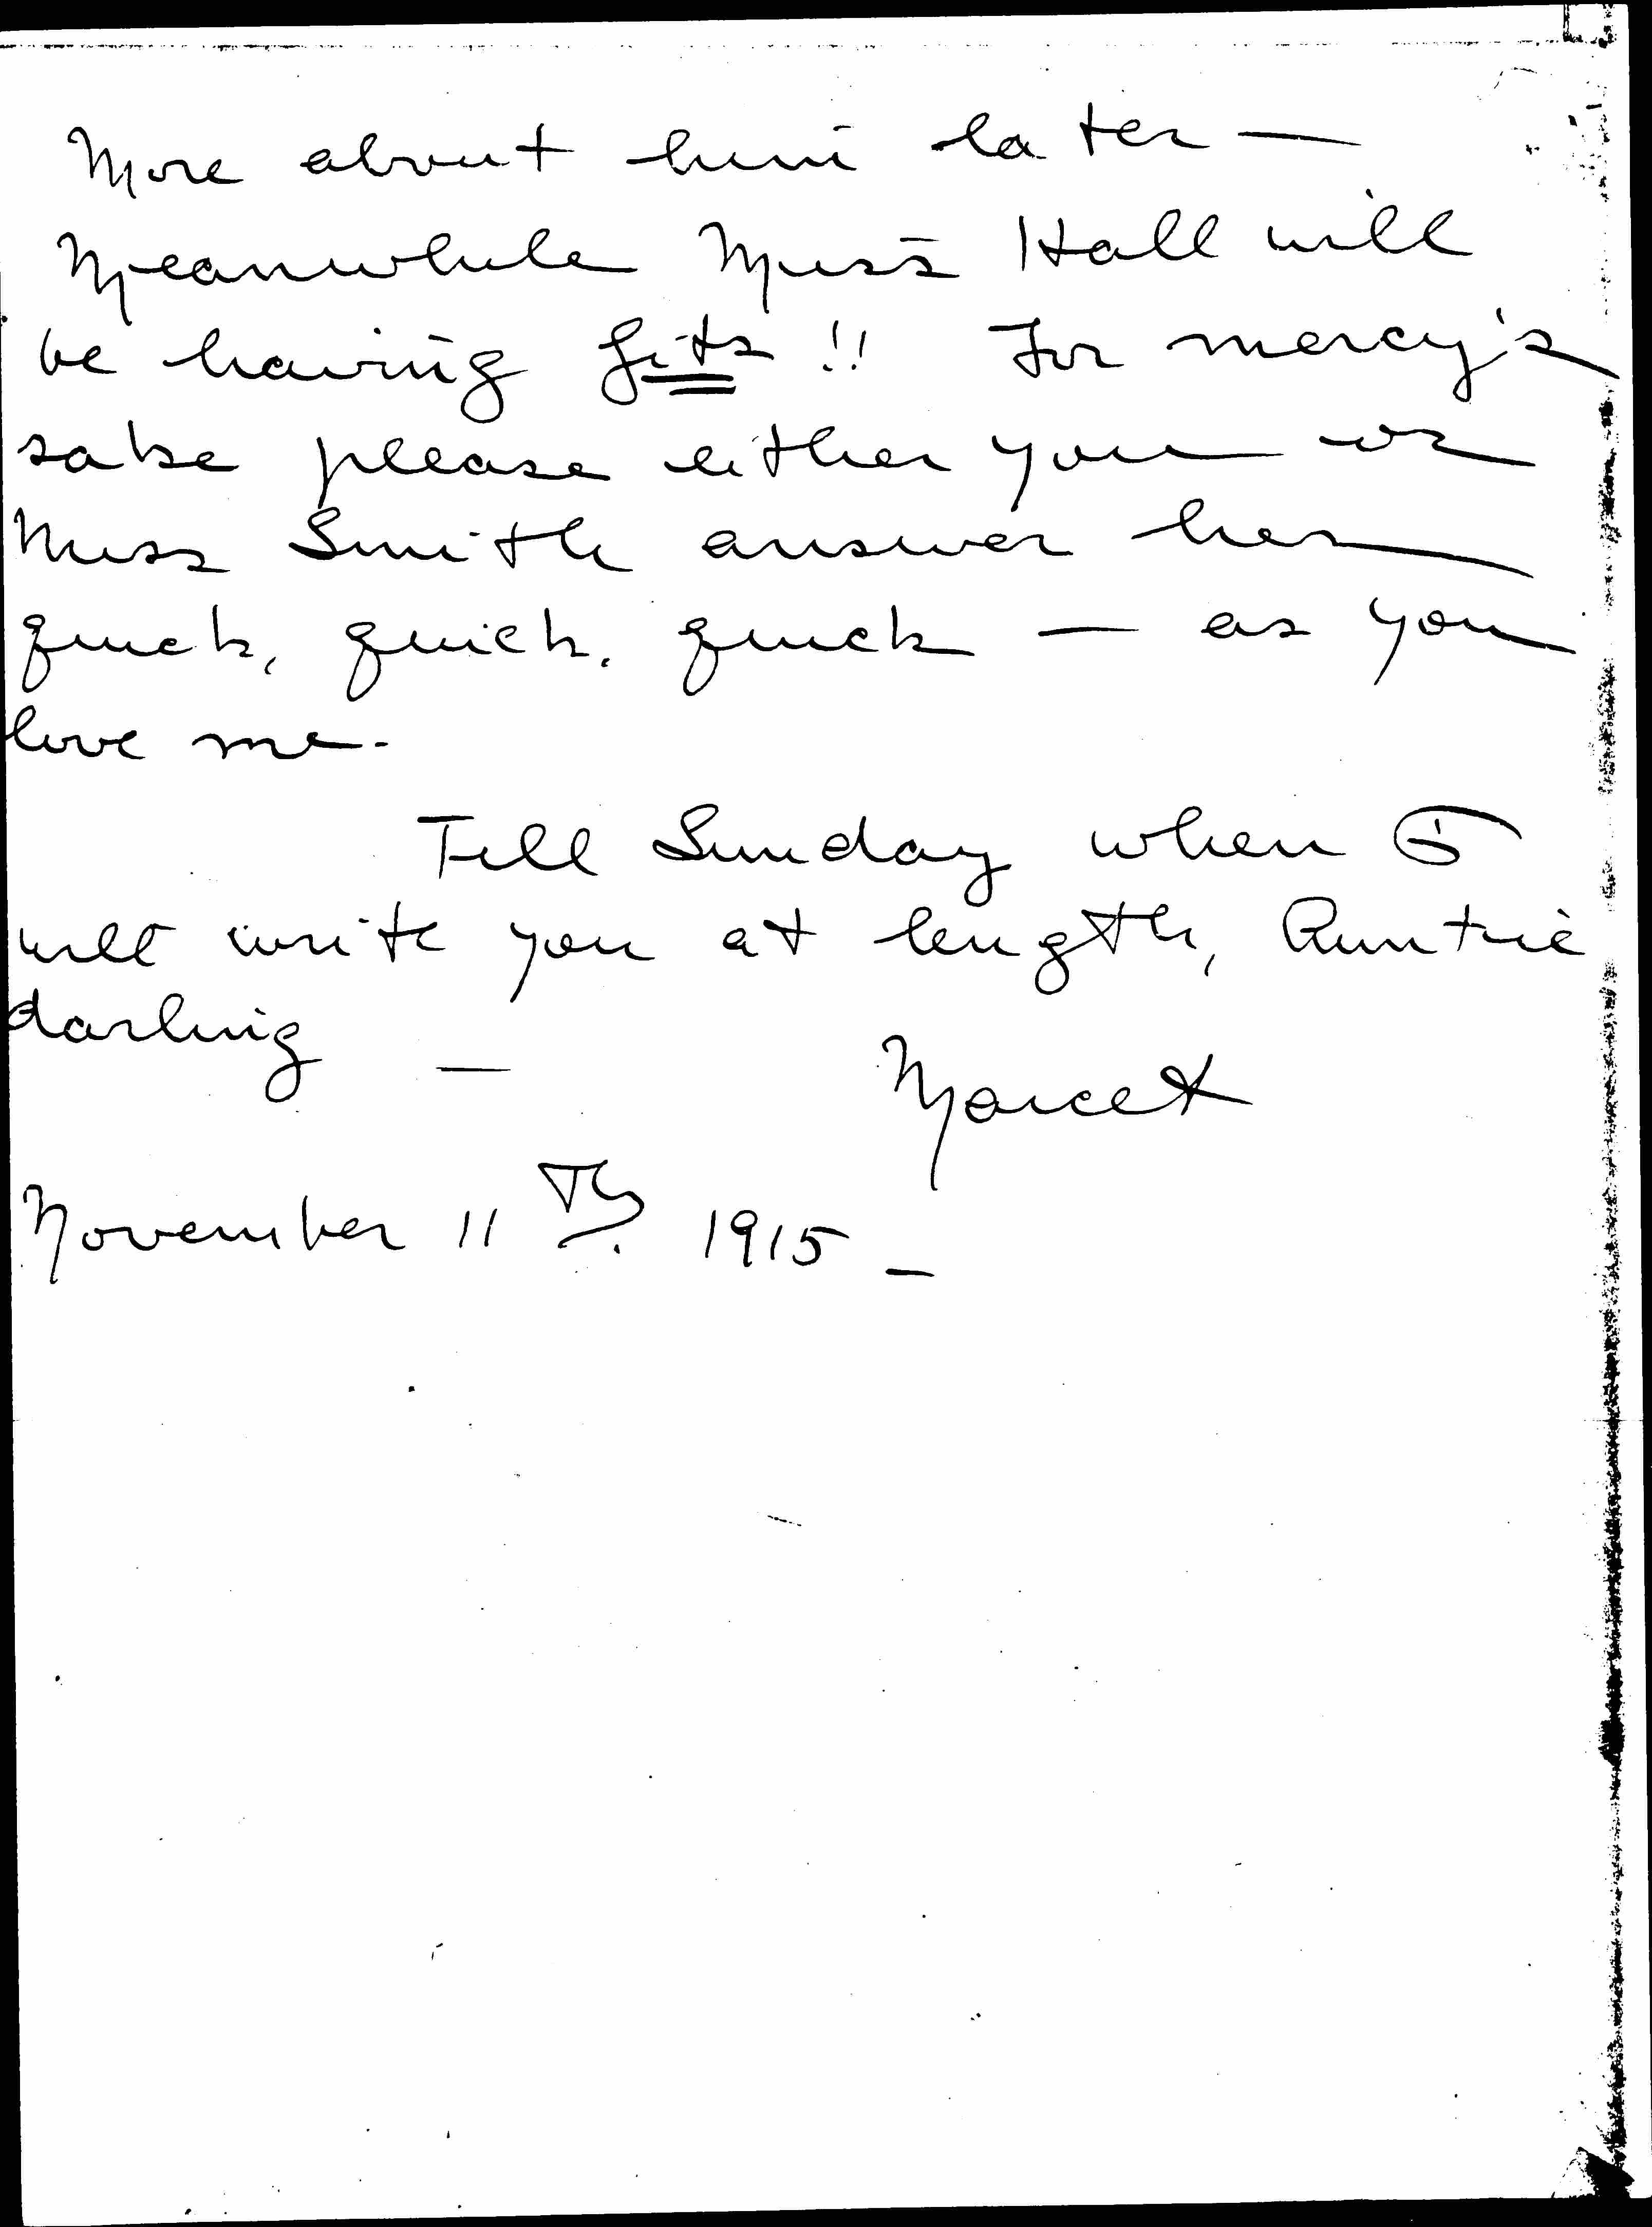 More about him later —
Meanwhile Miss Hall will
be having fits !! For mercy's
sake please either you or
Miss Smith answer her
quick, quick, quick — as you
love me.
Till Sunday when I
will write you at length, Auntie
darling —
Marcet
November 11th. 1915 —